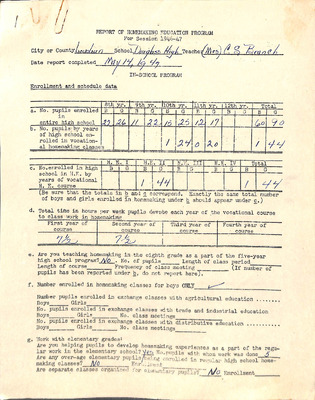 REPORT OF HOMEMAKING EDUCATION PROGRAM
For Session 1946-47
City or County Loudoun School Douglass High Teacher (Mrs) C. S. Branch
Date report completed May 14, 1947
IN-SCHOOL PROGRAM
Enrollment and schedule data
8th yr. 9th yr. 10th yr. 11th yr. 12th yr. Total
B G B G B G B G B G B G
a. No. pupils enrolled in
entire high school 22 26 11 22 15 25 12 17 60 90
b. No. pupils by years
of high school en-
rolled in vocation-
al homemaking classes 1 24 0 20 1 44
H.E. I H.E. II H.E. III H.E. IV Total
c. No. enrolled in high
school in H.E. by
years of vocational
H.E. course 1 44 1 44
(Be sure that the totals in b and c correspond. Exactly the same total number
of boys and girls enrolled in homemaking under b should appear under c.)
d. Total time in hours per week pupils devote each year of the vocational course
to class work in homemaking
First year of course Second year of course Third year of course Fourth year of course
7½ 7½
e. Are you teaching homemaking in the eighth grade as a part of the five-year
high school program? No No. of pupils Length of class period
Length of course Frequency of class meeting (If number of
pupils has been reported under b, do not report here).
f. Number enrolled in homemaking classes for boys ONLY
Number pupils enrolled in exchange classes with agricultural education
Boys Girls No. class meetings
No. pupils enrolled in exchange classes with trades and industrial education
Boys Girls No. class meetings
No. pupils enrolled in exchange classes with distributive education
Boys Girls No. class meetings
g. Work with elementary grades:
Are you helping pupils to develop homemaking experiences as a part of the regu-
lar work in the elementary school? Yes No. pupils with whom work was done 5
Are any over-age elementary pupils being enrolled in regular high school home-
making classes? No Enrollment
Are separate classes organized for elementary pupils? No Enrollment